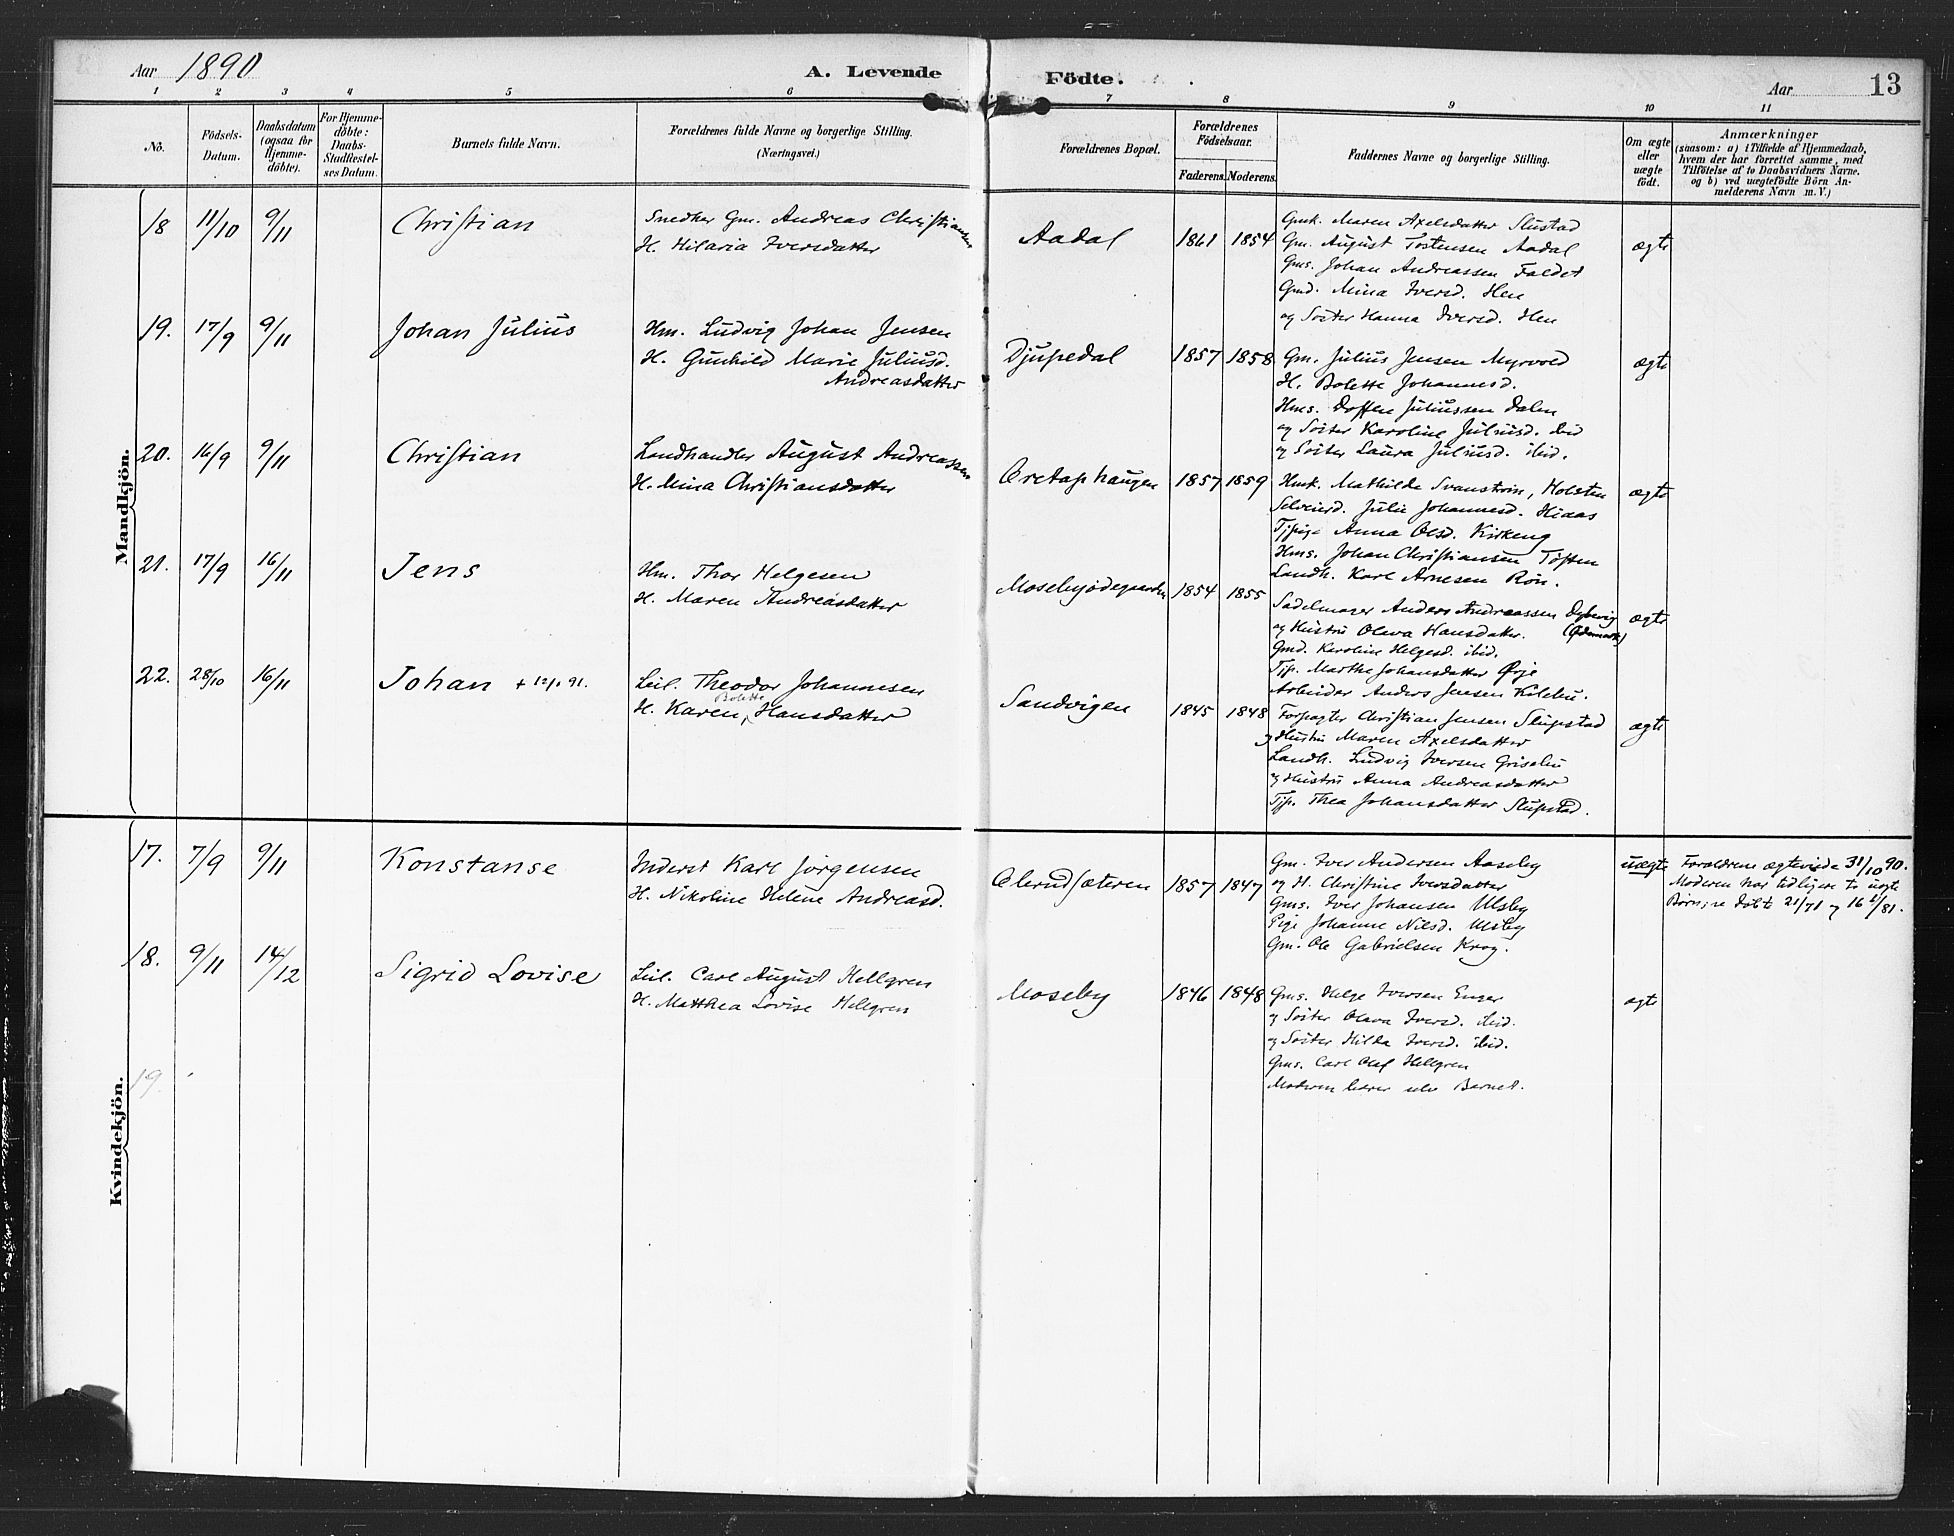 Aar 1890
A. Levende Födte.
Aar 13
1 2 3 4 5 6 7 8 9 10 11
No.
Födsels-
Datum.
Daabsdatum
(ogsaa for
Hjemme-
döbte).
For Hjemme-
döbte:
Daabs-
Stadfæstel-
ses Datum.
Barnets fulde Navn.
Forældrenes fulde Navne og borgerlige Stilling.
(Næringsvei.)
Forældrenes Bopæl.
Forældrenes
Födselsaar.
Faderens. Moderens.
Faddernes Navne og borgerlige Stilling.
Om ægte
eller
uægte
födt.
Anmærkninger
(saasom: a) i Tilfælde af Hjemmedaab,
hvem der har forrettet samme, med
Tilföielse af to Daabsvidners Navne.
og b) ved uægtefödte Börn An-
melderens Navn m. V.)
Mandkjön.
18 11/10 9/11 Christian
Snedker Gm. Andreas Christiansen
H. Hilaria Iversdatter
Aadal 1861 1854
Gmk. Maren Axelsdatter Slustad
Gm. August Tostensen Aadal
Gms. Johan Andreassen Faldet
Gmd. Mina Iversd. Hen
og Söster Hanna Iversd. Hen
ægte
19. 17/9 9/11 Johan Julius
Hm. Ludvig Johan Jensen
H. Gunhild Marie Juliusd.
Andreasdatter
Djupedal 1857 1858
Gm. Julius Jensen Myrvold
H. Bolette Johannesd.
Hms. Doffen Juliussen Dalen
og Söster Karoline Juliusd. ibid
og Söster Laura Juliusd. ibid.
ægte
20. 16/9 9/11 Christian
Landhandler August Andreassen
H. Mina Christiansdatter
Oretaphaugen 1857 1859
Hmk. Mathilde Svanström, Holsten
Selveierd. Julie Johannesd. Hiaas
Tjpige Anna Olsd. Kirkeng
Hms. Johan Christiansen Töften
Landh. Karl Arnesen Rön.
ægte
21. 17/9 16/11 Jens
Hm. Thor Helgesen
H. Maren Andreasdatter
Mosebyödegaarden 1854 1855
Sadelmager Anders Andreassen Dybevig
og Hustru Oleva Hansdatter. (Ödemark)
Gmd. Karoline Helgesd. ibid.
Tjp. Marthe Johansdatter Örje
Arbeider Anders Jensen Kolebu.
ægte
22. 28/10 16/11 Johan + 12/1 91.
Leil. Theodor Johannesen
Bolette
H. Karen, Hansdatter
Sandvigen 1845 1848
Forpagter Christian Jensen Slupstad
og Hustru Maren Axelsdatter
Landh. Ludvig Iversen Grisebu
og Hustru Anna Andreasdatter
Tjp. Thea Johansdatter Slupstad.
ægte
Kvindekjön.
17. 7/9 9/11 Konstanse
Inderst Karl Jörgensen
H. Nikoline Helene Andreasd.
Olerudsæteren 1857 1847
Gm. Iver Andersen Aaseby
og H. Christine Iversdatter
Gms. Iver Johansen Ulsby
Pige Johanne Nilsd. Ulsby
Gm. Ole Gabrielsen Krog.
uægte
Forældrene ægteviede 31/10 90.
Moderen har tidligere to uægte
Börn, döbte 21/71 og 16 /81.
18. 9/11 14/12 Sigrid Lovise
Leil. Carl August Hellgren
H. Matthea Lovise Hellgren
Moseby 1846 1848
Gms. Helge Iversen Enger
og Söster Oleva Iversd. ibid.
og Söster Hilda Iversd. ibid.
Gms. Carl Olaf Hellgren
Moderen bærer selv Barnet.
ægte
19.